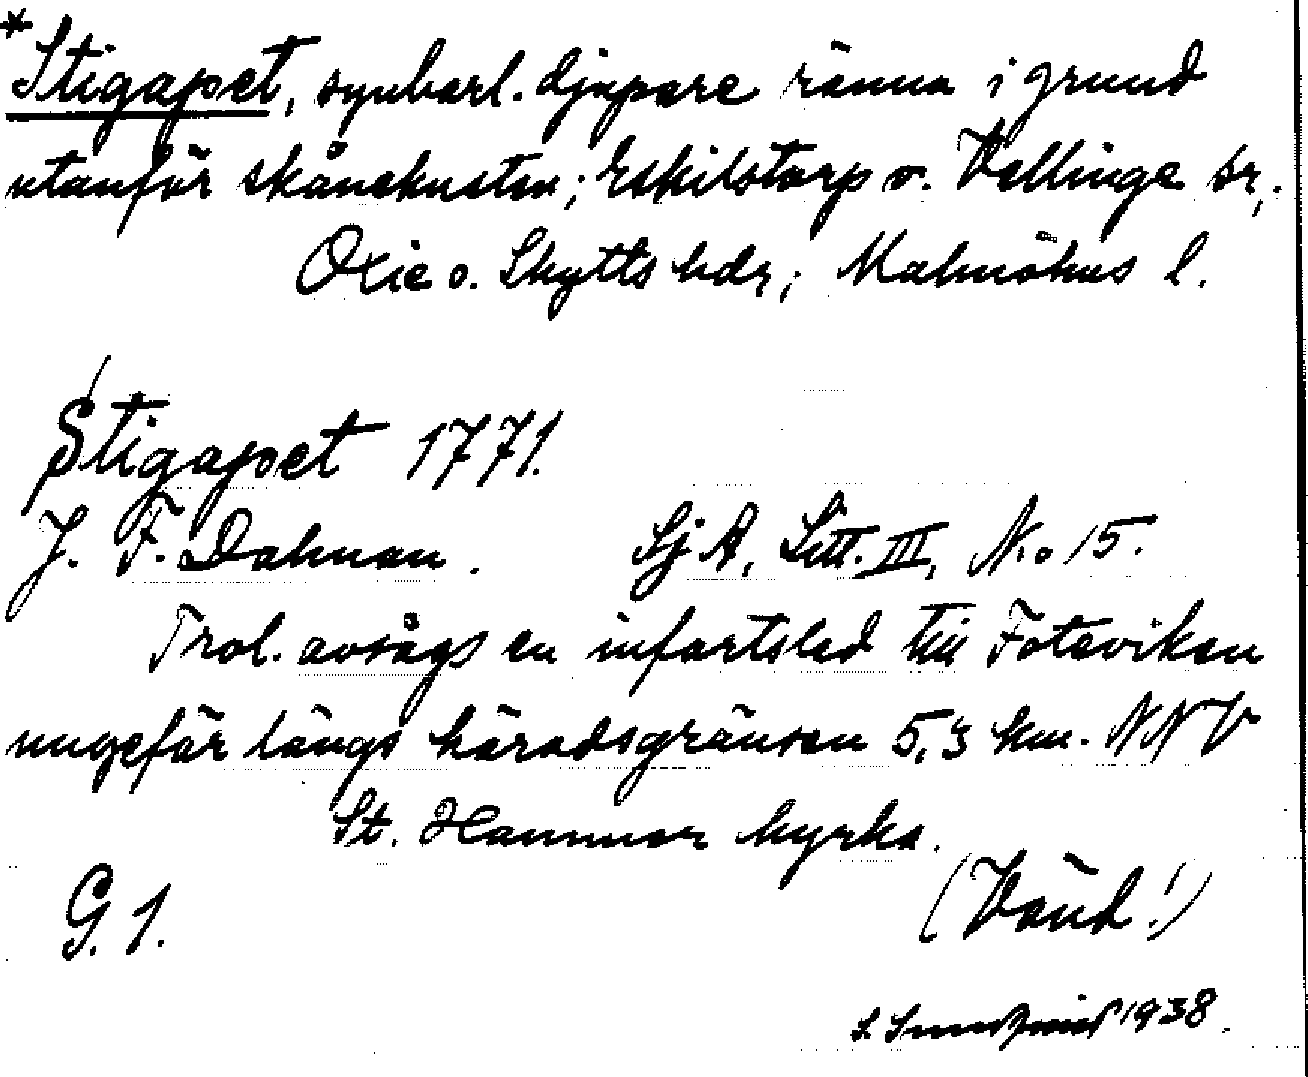 *Stigapet, synbarl. djupare ränna i grund
utanför skånekusten; Eskilstorp o. Vellinge sr,.
Oxie o. Skytts hdr; Malmöhus l.
Stigapet 1771.
J. F. Dalman. SjA, Litt. III, No 15.
Trol. avsågs en infartsled till Foteviken
ungefär längs häradsgränsen 5,3 km. NNV
St. Hammar kyrka.
G. 1. (Vänd!)
1938.